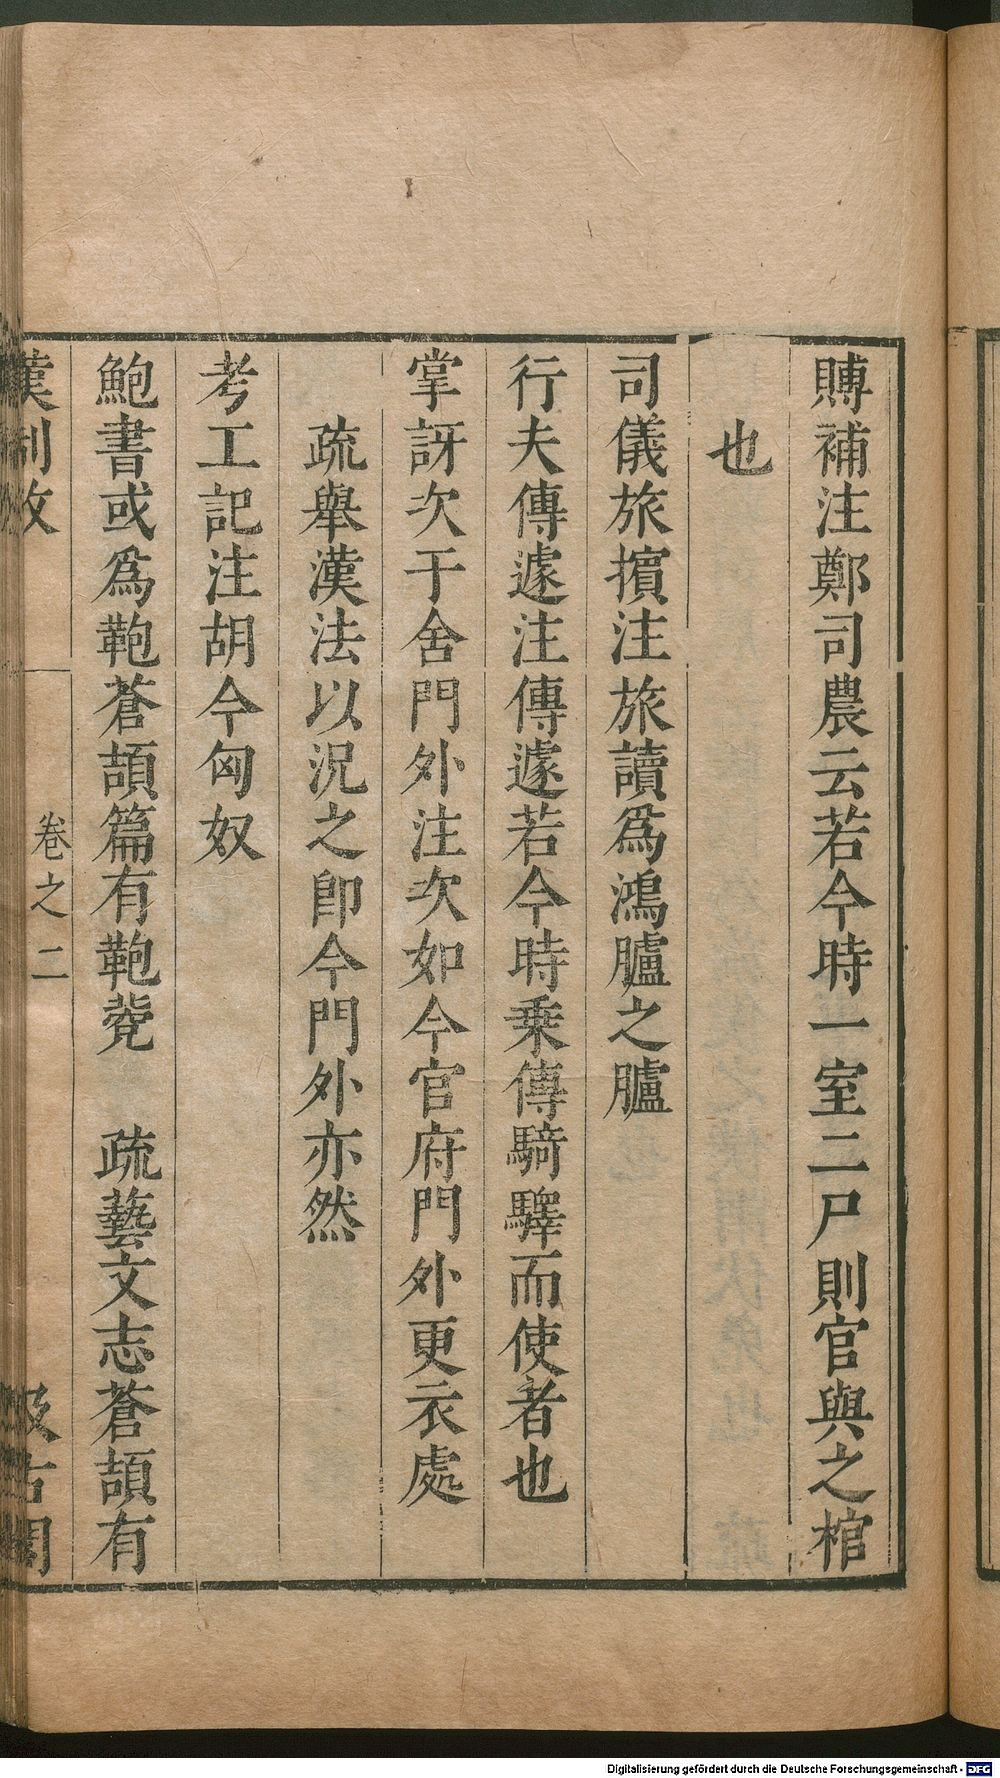 賻補注鄭司農云若今時一室二尸則官與之棺
也
司儀旅擯注旅讀爲鴻臚之臚
行夫傳遽注傳遽若今時乗傳騎驛而使者也
掌訝次于舍門外注次如今官府門外更衣處
疏舉漢法以況之卽今門外亦然
考工記注胡今匈奴
鮑書或爲鞄蒼頡篇有鞄㼱 疏藝文志蒼頡有
漢制攷 卷之二 汲古閣
Digitalisierung gefördert durch die Deutsche Forschungsgemeinschaft - DFG